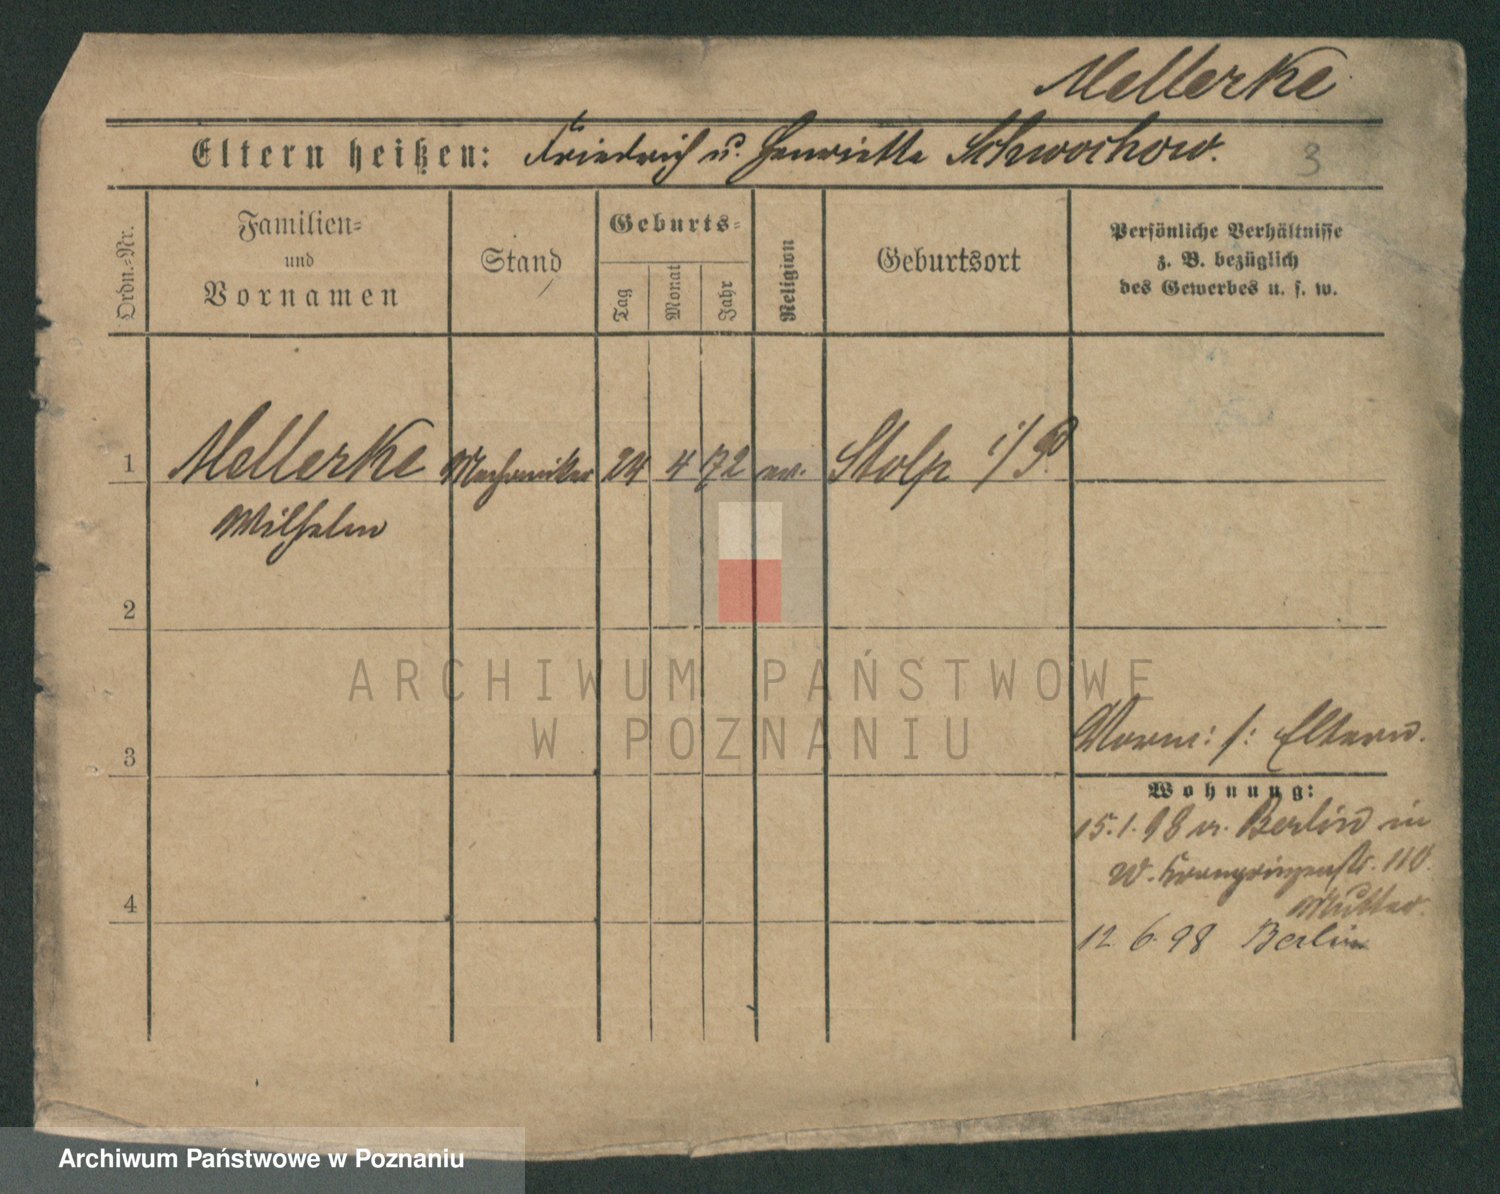 Mellerke
Eltern heißen: Friedrich u. Henriette Schwochow.
3
Ordn.-Nr.
Familien-
und
Vornamen
Stand
Geburts-
Tag
Monat
Jahr
Religion
Geburtsort
Persönliche Verhältnisse
z. B. bezüglich
des Gewerbes u. s. w.
1 Mellerke Mechaniker 24 4 72 ev. Stolp i/P.
Wilhelm
2
ARCHIWUM PAŃSTWOWE
W POZNANIU
3
Vorm: s: Eltern.
Wohnung:
15.1.98 v. Berlin in
W. Kronprinzenstr. 110.
Mutter.
4
12 6 98 Berlin
Archiwum Państwowe w Poznaniu